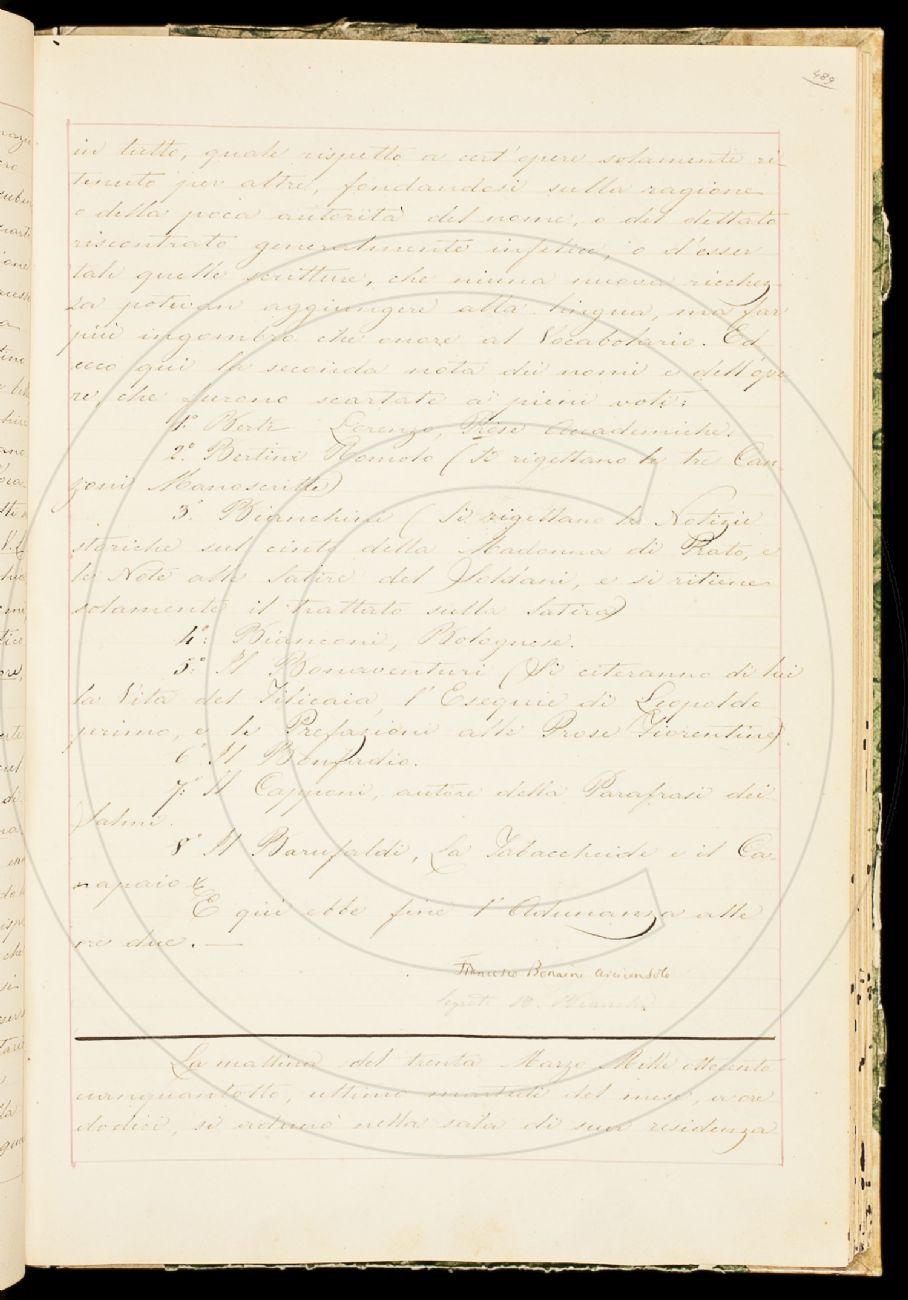 489
in tutto, quale rispetto a cert'opere solamente ri-
tenuto per altre, fondandosi sulla ragione
o della poca autorità del nome, o del dettato
riscontrato generalmente infelice, o d'esser
tali quelle scritture, che niuna nuova ricchez-
za potevan aggiungere alla lingua, ma far
più ingombro che onore al Vocabolario. Ed
ecco qui la seconda nota dei nomi e dell'ope-
re, che furono scartate a' pieni voti:
1.° Berti Lorenzo, Prose Accademiche.
2.° Bertini Romolo (Si rigettano le tre Can-
zoni Manoscritte)
3.° Bianchini (Si rigettano le Notizie
storiche sul cinto della Madonna di Prato, e
le Note alle Satire del Soldani, e si ritiene
solamente il trattato sulla Satira)
4.° Bianconi, Bolognese.
5.° Il Bonaventuri (Si citeranno di lui
la Vita del Filicaia, l'Esequie di Leopoldo
primo, e le Prefazioni alle Prose Fiorentine).
6.° Il Bonfadio.
7.° Il Capponi, autore della Parafrasi dei
Salmi.
8.° Il Barufaldi, La Tabaccheide e il Ca-
napaio
E qui ebbe fine l'Adunanza alle
ore due. —
Francesco Bonaini Arciconsolo
Segret. B. Bianchi
La mattina del trenta Marzo Mille ottocento
cinquantotto, ultimo martedì del mese, a ore
dodici, si adunò nella sala di sua residenza